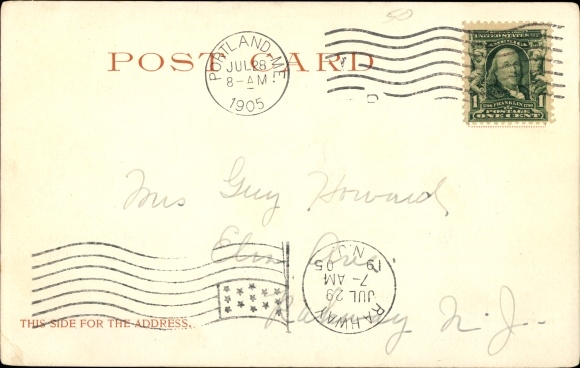 50
POST CARD
PORTLAND, ME.
JUL 28
8-AM
1905
UNITED STATES OF AMERICA
1 FRANKLIN 1
POSTAGE
ONE CENT
Mrs Guy Howard
Elm Ave.
Rahway N. J.
RAHWAY
JUL 29
7-AM
19 05
N.J.
THIS SIDE FOR THE ADDRESS.